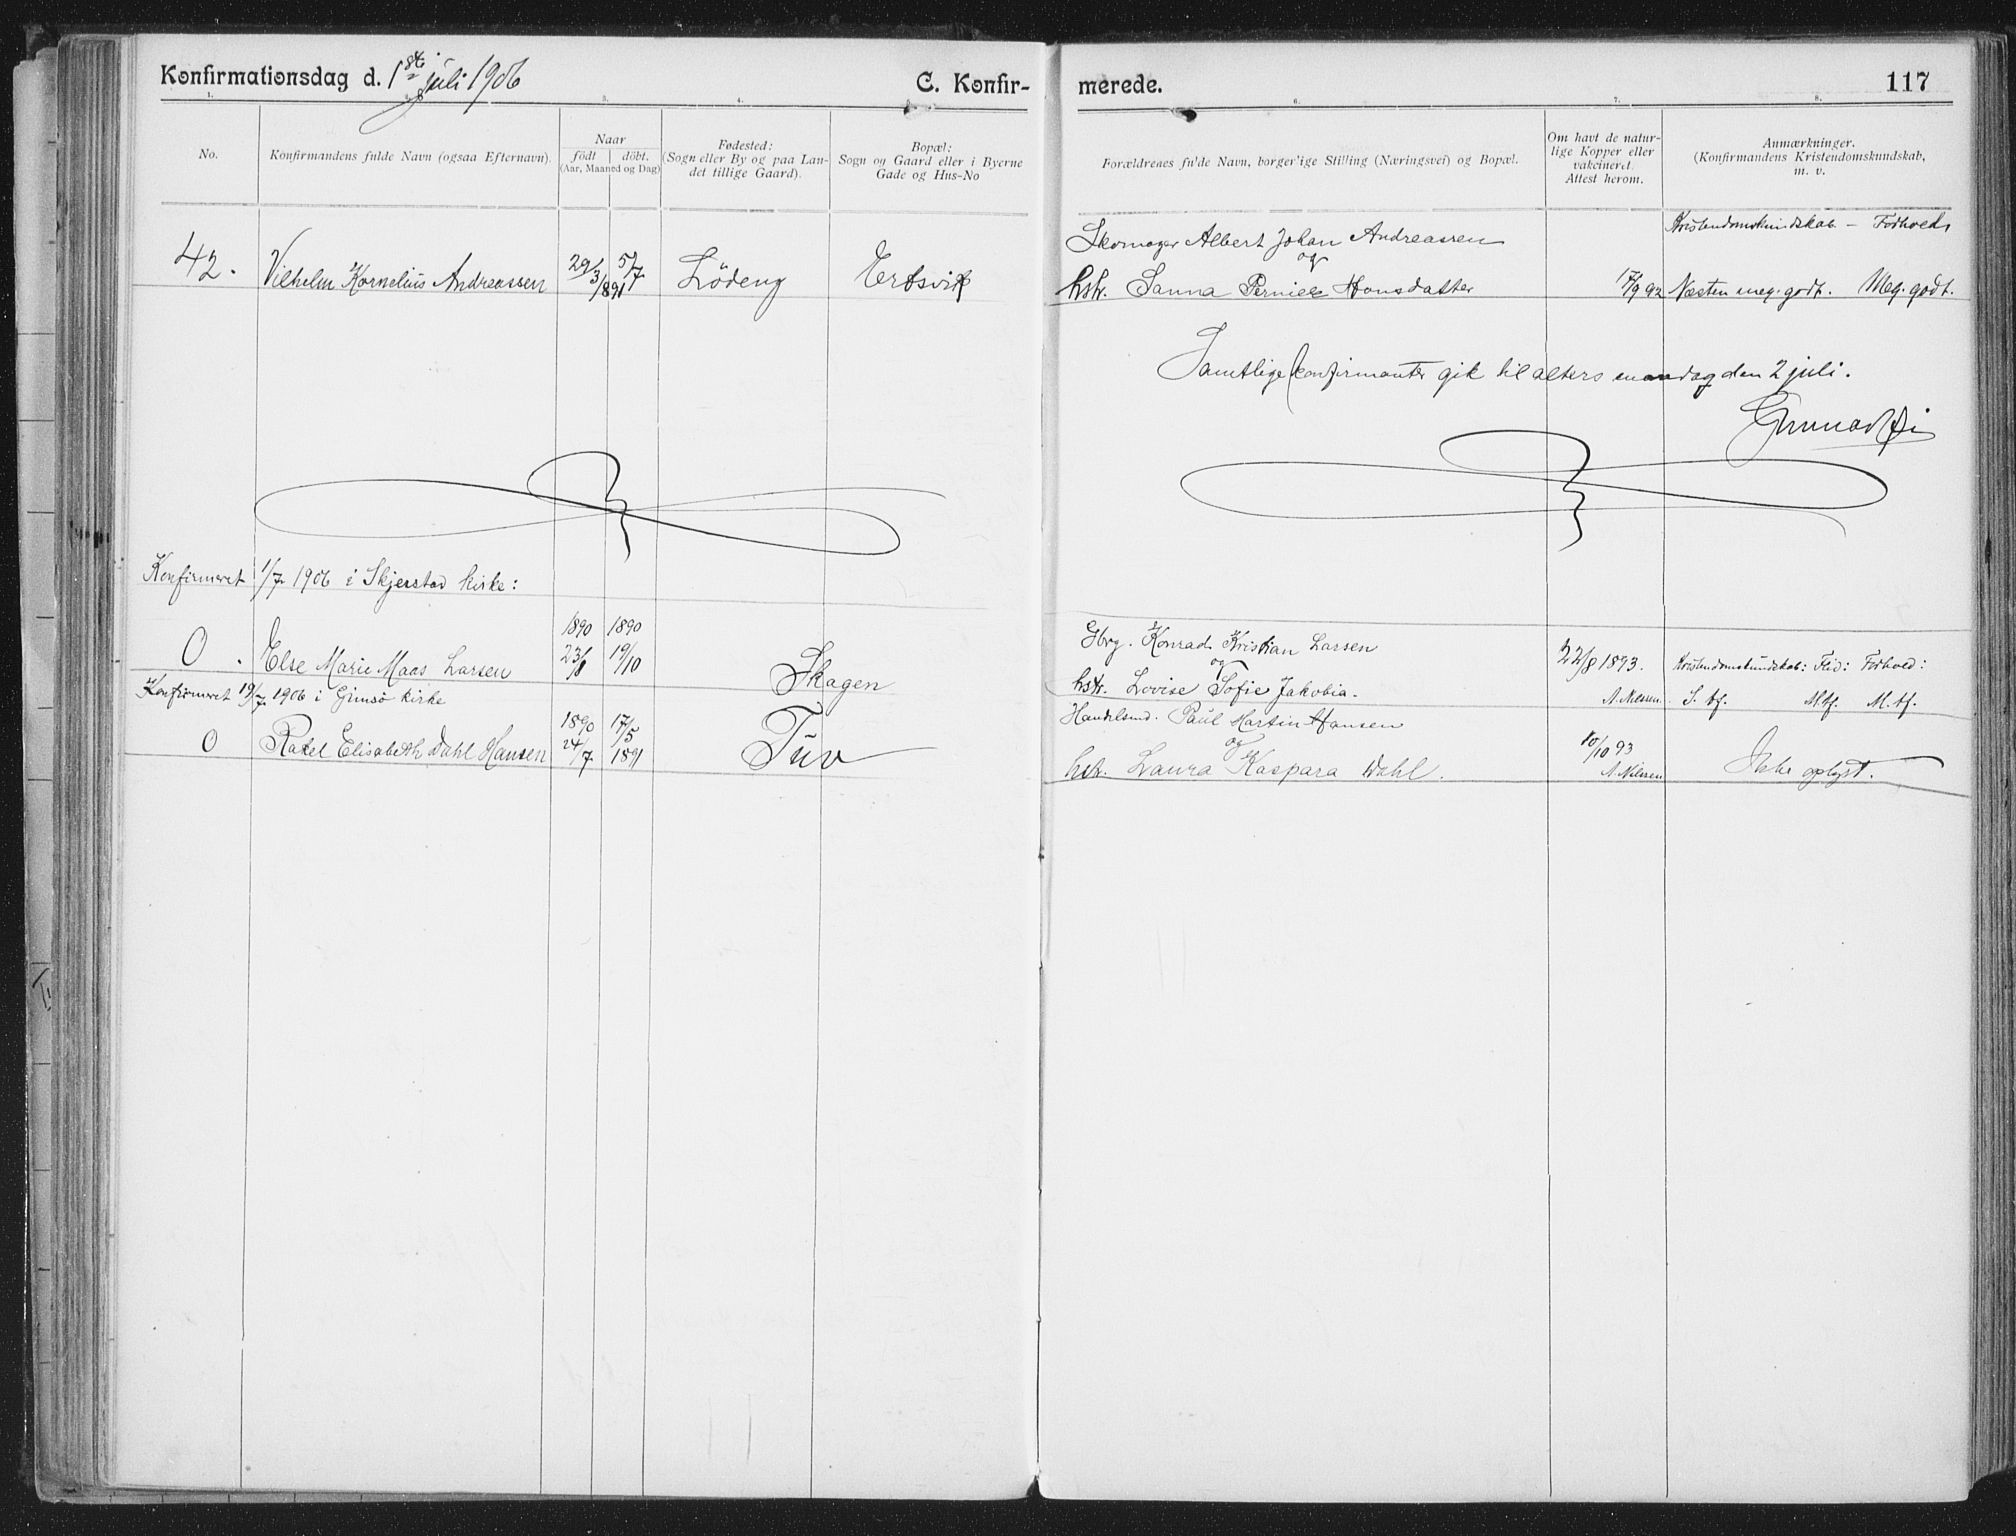 Konfirmationsdag d. 1ste juli 1906
C. Konfir-
merede.
117
1. 3. 4. 6. 7. 8.
No.
Konfirmandens fulde Navn (ogsaa Efternavn).
Naar
födt | döbt.
(Aar, Maaned og Dag)
Fødested:
(Sogn eller By og paa Lan-
det tillige Gaard).
Bopæl:
Sogn og Gaard eller i Byerne
Gade og Hus-No
Forældrenes fulde Navn, borgerlige Stilling (Næringsvei) og Bopæl.
Om havt de natur-
lige Kopper eller
vakcineret.
Attest herom.
Anmærkninger.
(Konfirmandens Kristendomskundskab,
m. v.
Skomager Albert Johan Andreassen
Kristendomskundskab – Forhold
og
42. Vilhelm Kornelius Andreassen 29/3 5/7 1891 Lödeng Ertsvik
hstr. Sanna Pernille Hansdatter 17/9 92 Næsten meg. godt. Meg. godt.
Samtlige konfirmanter gik til alters mandag den 2 juli.
Gunnar Øi
Konfirmeret 1/7 1906 i Skjerstad kirke:
1890 1890
0. Else Marie Maas Larsen 23/8 19/10 Skagen
Gbrg. Konrad Kristian Larsen
og
22/8 1893. Kristendomskundskab: Flid: Forhold:
hstr. Lovise Sofie Jakobia.
A. Nilssen. S. tf. M.tf. M.tf.
Konfirmeret 19/7 1906 i Gimsö kirke
1890 17/5
0 Rakel Elisabeth Dahl Hansen 24/7 1891 Tuv
Handelsmd. Paul Martin Hansen
og
10/10 93
hstr. Laura Kaspara Dahl.
A. Nilssen
Ikke oplyst.